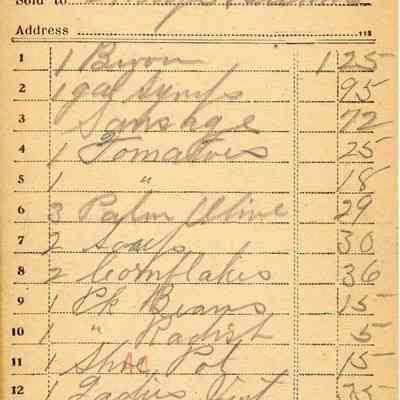 Sold to
Address 118
1 1 Broom 1 25
2 1 gal Syrups 95
3 Sausage 72
4 1 Tomatoes 25
5 1 " 18
6 3 Palm Olive 29
7 2 Soaps 30
8 2 Cornflakes 36
9 1 Pk Beans 15
10 1 " Radish 5
11 1 Shoe Pol 15
12 1 Ladies Vest 75